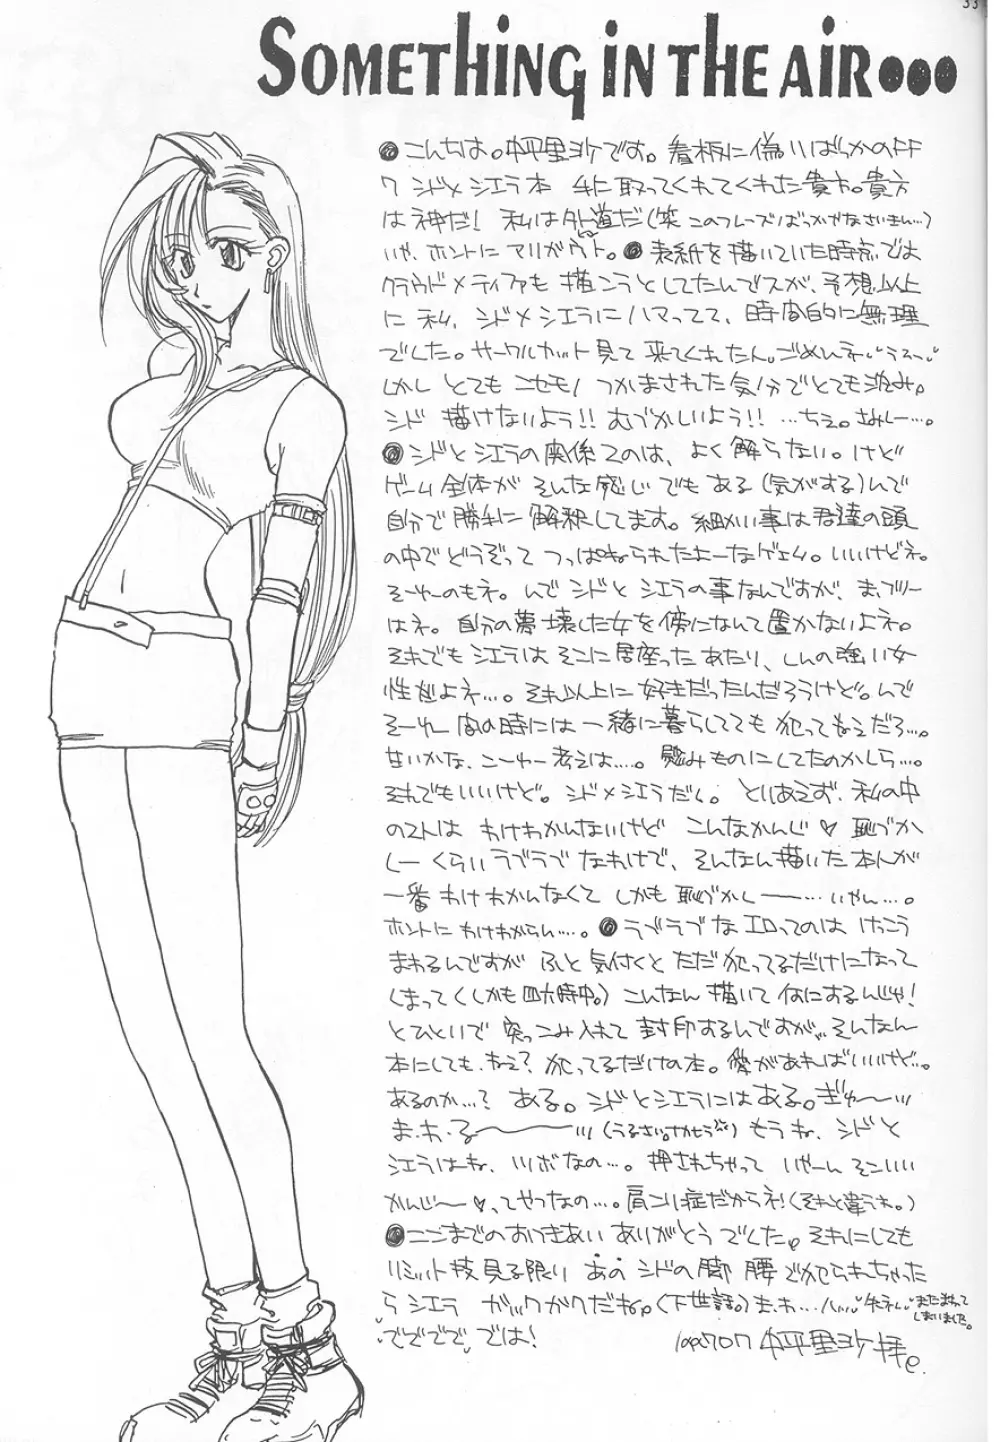 SOMETHING IN THE AIR●●●
●こんちは。中平里沙です。看板に偽りばっかのFF
7 シドとシエラ本 手に取ってくれてくれた貴方。貴方
は神だ! 私は外道だ(笑 このフレーズばっかやなさいきん…)
いや、ホントにアリガウト。●表紙を描いていた時点では
クラウド×ティファも描こうとしてたんでスが、予想以上
に私、シド×シエラにハマってて、時間的に無理
でした。サークルカット見て来てくれた人。ごめんネ
しかし とても ニセモノ つかまされた気分でとても沈み。
シド 描けないよう!! むづかしいよう!! …ちえ。さみしー…。
●シドとシエラの関係つのは、よく解らない。けど
ゲーム全体が そんな感じでもある(気がする)んで
自分で勝手に解釈してます。細かい事は君達の頭
の中でどうぞって つっぱねられたよーなゲェム。いいけどネ。
そーゆーのもネ。んで シドとシエラの事なんですが、ま、フツー
はネ。自分の夢壊した女を傍になんて置かないよネ。
それでもシエラはそこに居座ったあたり、しんの強い女
性だよネ…。それ以上に好きだったんだろうけど。んで
そーゆー 仲の時には一緒に暮らしてても犯ってもえだろ…。
甘いかな、こーゆー考えは…。慰みものにしてたのかしら…。
それでもいいけど。シド×シエラだし。とりあえず、私の中
のストは わけわかんないけど こんなかんじ♥ 恥づか
しーくらいラブラブ なわけで、そんなん描いた本人が
一番わけわかんなくて しかも恥づかし――…いやん…。
ホントに わけわからん…。●ラブラブなエロってのは けっこう
まわるんですが ふと気付くと ただ犯ってるだけになって
しまって(しかも四六時中。)こんなん描いて何にするんじゃ!
とひといで突っこみ入れて封印するんですが… そんなん
本にしても、ねえ? 犯ってるだけの本。愛があればいいけど…。
あるのか…? ある。シドとシエラにはある。ぎゅ~
ま・わ・る~(うるさい。)もうね、シドと
シエラはね、ツボなの…。押されちゃって いやーん そこいい
かんじ~♥ってやつなの…。肩こり症だからネ!(それと違うわ。)
●ここまでのおつきあい ありがとうでした。それにしても
リミット技見る限り あの シドの脚 腰で犯られちゃった
らシエラ ガックガクだね。(下世話。)ま、わ…
またまわってしまいました。
でででで、では!
中平里沙拝